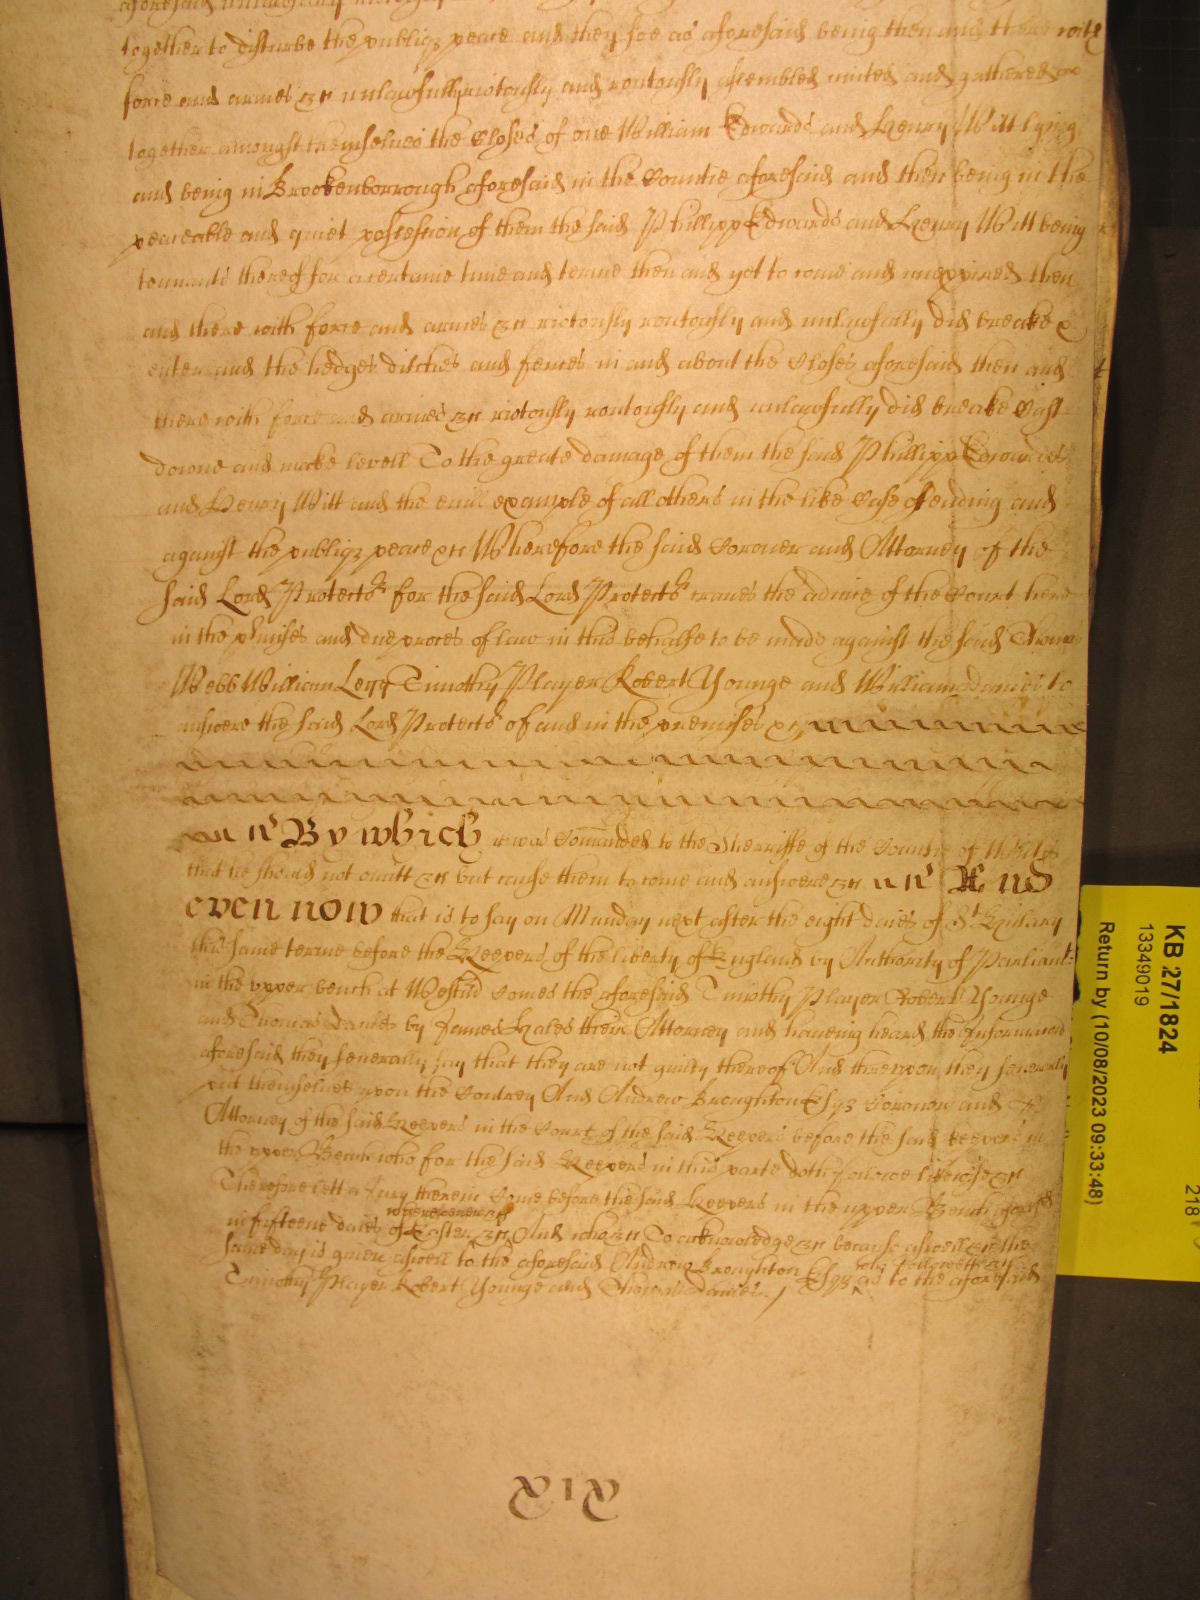 together to disturbe the publiq; peace and they soe as aforesaid being then and there with
force and armes &c unlawfully riotously and routously assembled united and gathered
together amongst themselves the Closes of one William Edwards and Henry Witt lying
and being in Brookenborrough aforesaid in the Countie aforesaid and then being in the
peaceable and quiet possession of them the said Phillipp Edwards and Henry Witt being
tennants thereof for a certaine time and terme then and yet to come and unexpired then
and there with force and armes &c riotously routously and unlawfully did breake &
enter and the hedges ditches and fences in and about the Closes aforesaid then and
there with force and armes &c riotously routously and unlawfully did breake Cast
downe and make levell To the greate damage of them the said Phillipp Edwardes
and Henry Witt and the evill example of all others in the like Case ofending and
against the publiq; peace &c Wherefore the said Coroner and Attorney of the
said Lord Protector for the said Lord Protector craves the advice of the Court here
in the p'mises and due proces of law in this behalfe to be made against the said Thomas
Webb William Legg Timothy Player Robert Younge and William Danies to
answere the said Lord Protector of and in the premises &c
By which it was Comanded to the Sherriffe of the Countie of Wilts
that he should not omitt &c but cause them to come and answere &c And
even now that is to say on Munday next after the eight daies of St Hillary
this same terme before the Keepers of the liberty of England by Authority of Parliamt
in the upper bench at Westmr Comes the aforesaid Timothy Player Robert Younge
and Thomas Danies by James Hales their Attorney and haveing heard the Informacion
aforesaid they severally say that they are not guilty thereof And thereupon they severally
put themselves upon the Contrey And Andrew Broughton Esq; Coronor and
Attorney of the said Keepers in the Court of the said Keepers before the said keepers in
the upper Bench who for the said Keepers in this parte doth follow likewise &c
Therefore lett a Jury therein Come before the said Keepers in the upper Bench aforesd
wheresoever &c
in fifteene daies of Easter &c And who &c To acknowledge &c because aswell &c the
same day is given aswell to the aforesaid Andrew Broughton Esq; who followeth &c as to the aforesaid
Timothy Player Robert Younge and Thomas Danies
xix
KB 27/1824
13349019
Return by (10/08/2023 09:33:48)
218